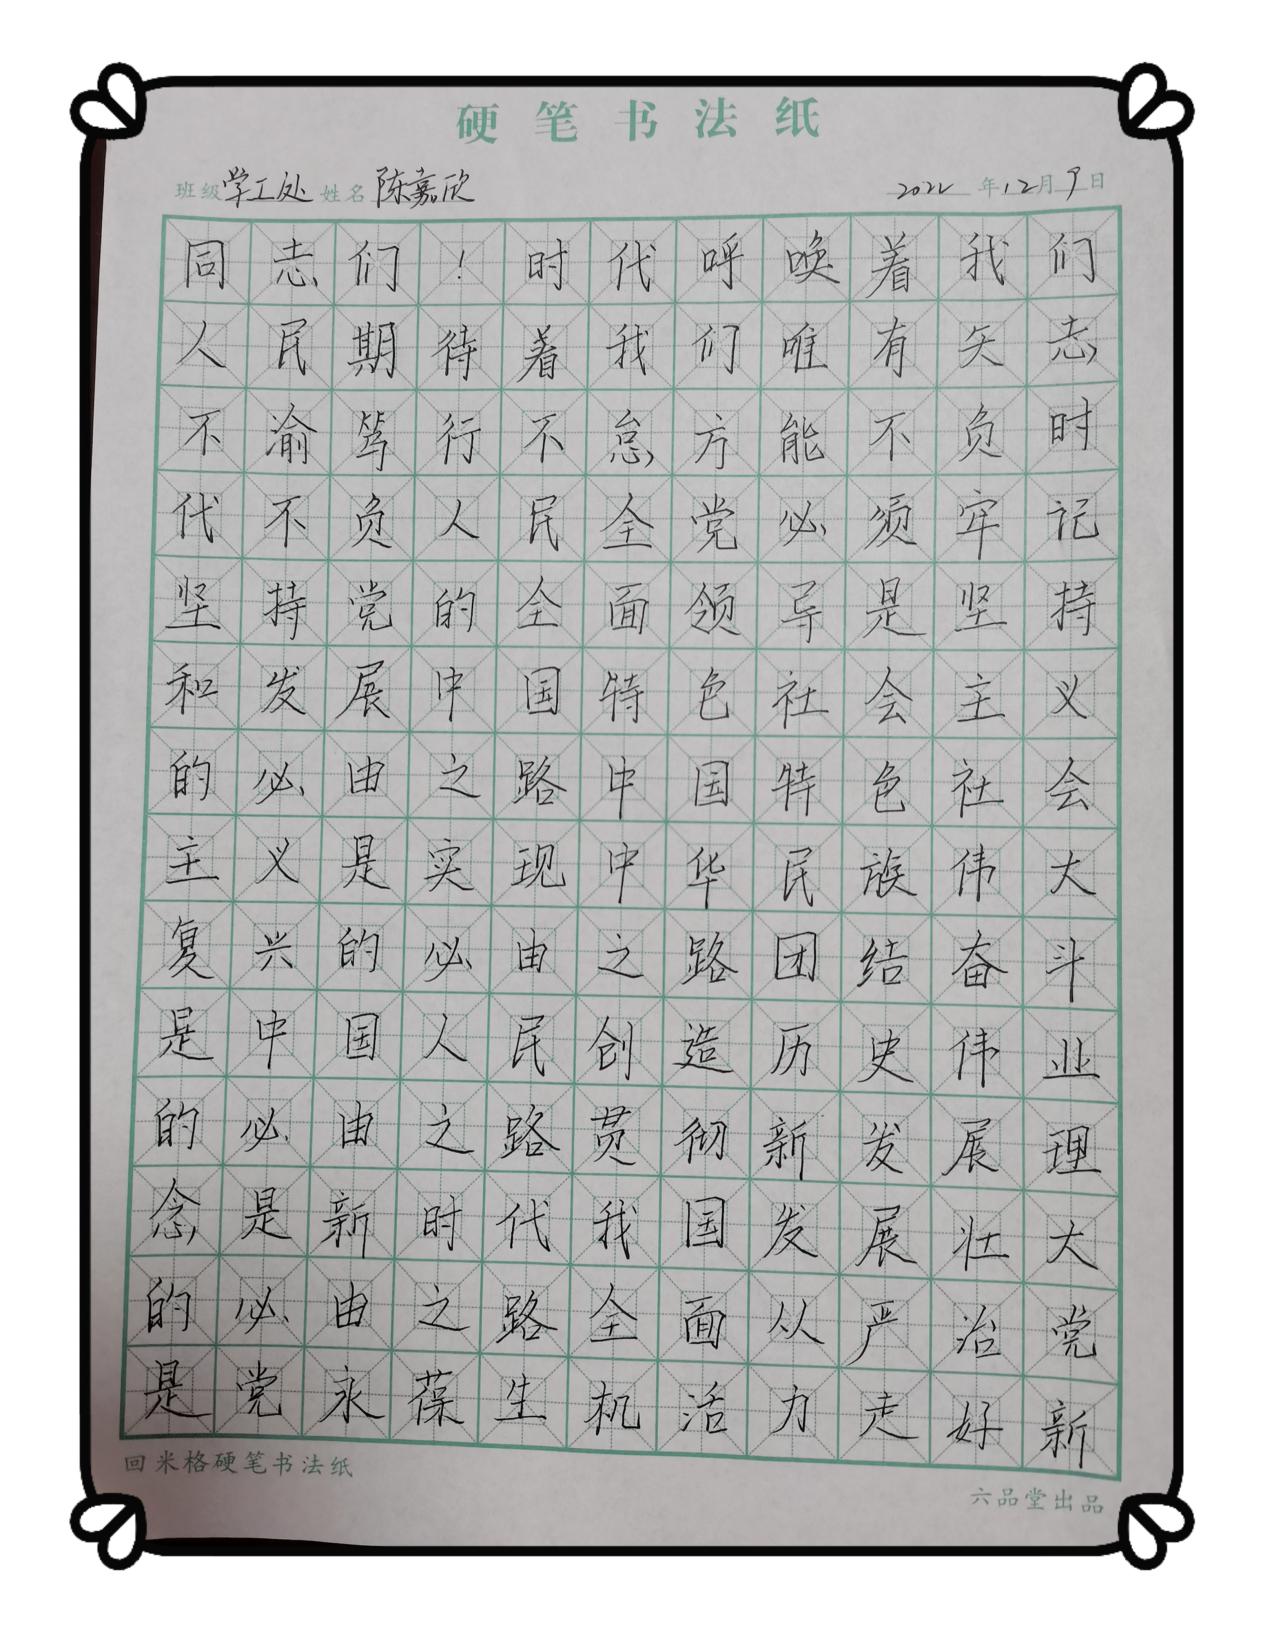 硬笔书法纸
班级 学工处 姓名 陈嘉欣 2022年12月9日
同志们！时代呼唤着我们
人民期待着我们唯有矢志
不渝笃行不怠方能不负时
代不负人民全党必须牢记
坚持党的全面领导是坚持
和发展中国特色社会主义
的必由之路中国特色社会
主义是实现中华民族伟大
复兴的必由之路团结奋斗
是中国人民创造历史伟业
的必由之路贯彻新发展理
念是新时代我国发展壮大
的必由之路全面从严治党
是党永葆生机活力走好新
回米格硬笔书法纸
六品堂出品